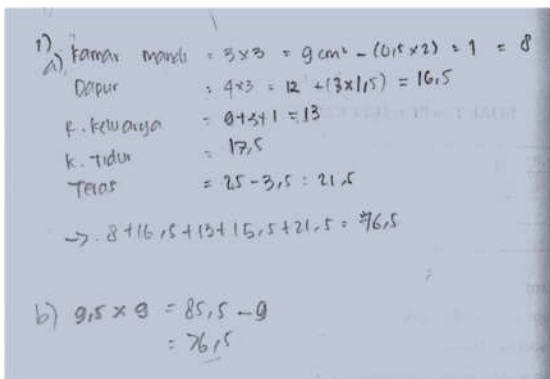 1)
a) Kamar mandi = 3 x 3 = 9 cm² - (0,5 x 2) = 1 = 8
Dapur = 4x3 = 12 + (3x1,5) = 16,5
r. keluarga = 9+3+1 = 13
k. Tidur = 17,5
Teras = 25 - 3,5 = 21,5
→ 8 + 16,5 + 13 + 15,5 + 21,5 = 76,5
b) 9,5 x 9 = 85,5 - 9
= 76,5